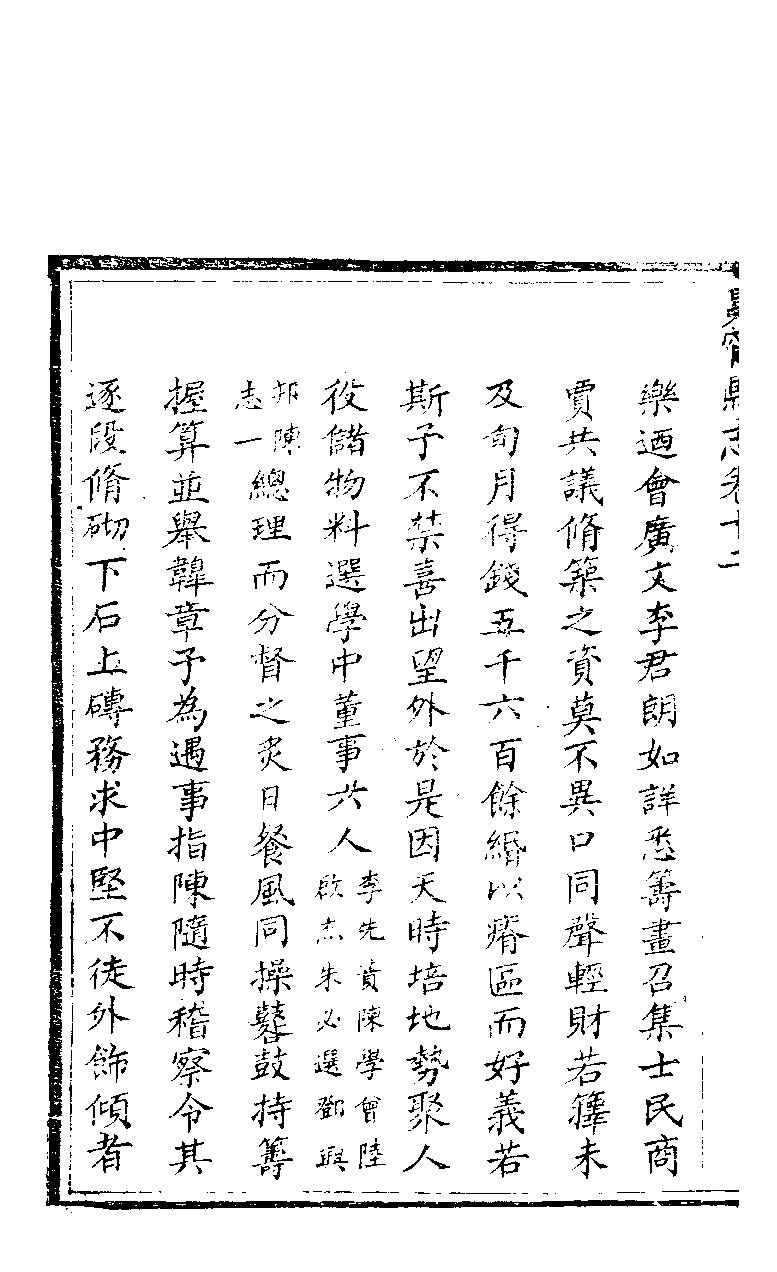 縣志卷十二
樂迺會廣文李君朗如詳悉籌畫召集士民商
賈共議脩築之資莫不異口同聲輕財若籜未
及旬月得錢五千六百餘緡以瘠區而好義若
斯予不禁喜出望外於是因天時培地勢聚人
役儲物料選學中董事六人李先蕡陳學曾陸啟杰朱必選鄧興
邦陳志一總理而分督之炙日餐風同操鼛鼓持籌
握算並舉韓章予為遇事指陳隨時稽察令其
逐段脩砌下石上磚務求中堅不徒外飾傾者